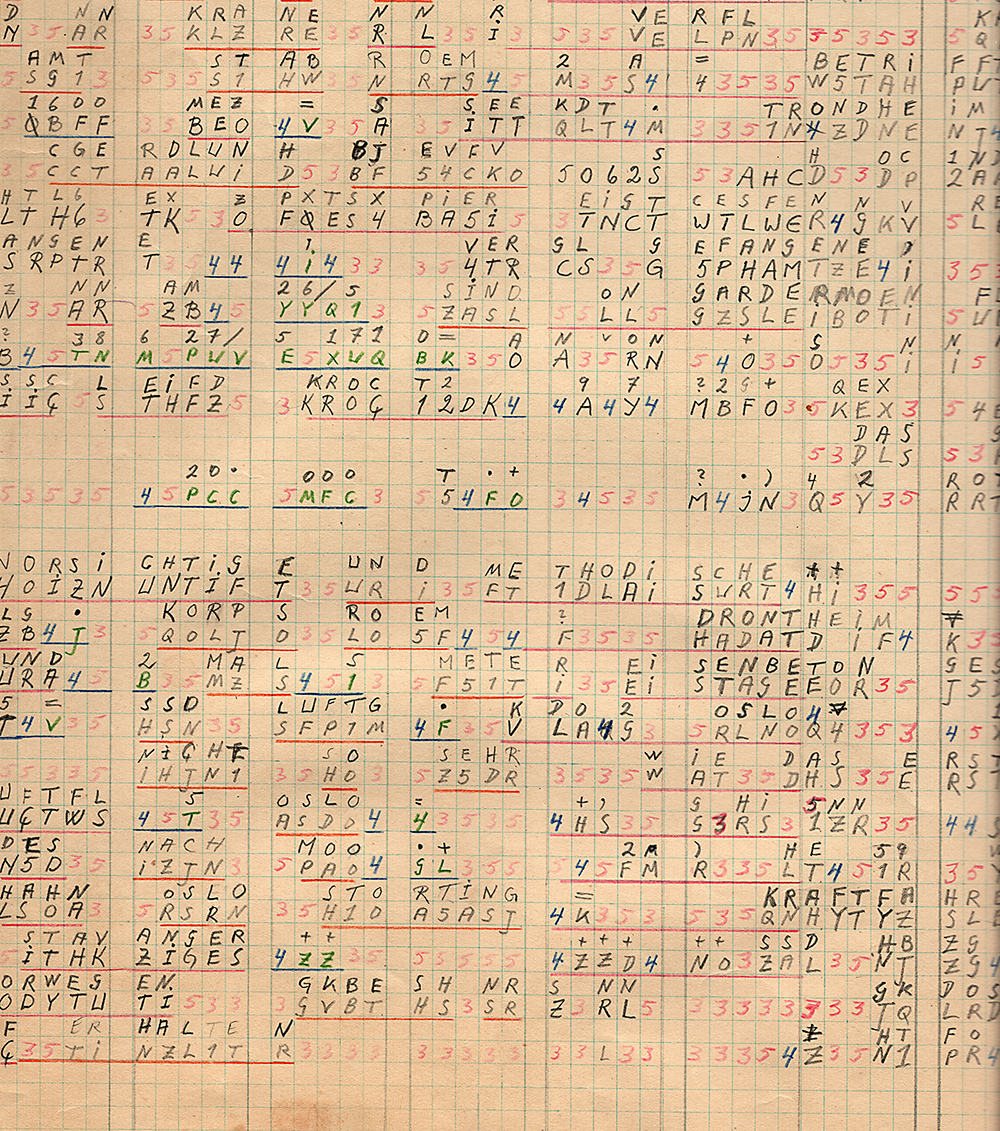 D NN KRA NE N N R VE RFL K
N35.AR 35KLZ RE35R L35I3 535VE LPN35 35353 5Q
AMT ST AB R OEM 2 A = BETRi FF
5SG13 535S1 HW35N RTG45 M35S4 43535 W5TAH PW
1600 MEZ = S SEE KDT . TRONDHE iM
5QBFF 35BEO 4V35A 35ITT QLT4M 3351N 4ZDNE NJ4
CGE RDLUN H BJ EVFV S H OC 1N
35CCT AALWi D53BF 54CKO 5062S 53AHC D53DP 2A
HTL6 EX Z PXTSX PiER EiGT CESFEN N V RE
LTH63 TK530 FQES4 BA5i5 3TNCT WTLWE R4GKV 5LE
ANGEN E 1, VER GL G EFANGENE D
SRPTR T3544 4i433 354TR CS35G 5PHAM TZE4i 353
Z NN AM 26/5 SIND ON GARDERMOEN F
N35AR 5ZB45 YYQ13 5ZASL 55LL5 GZSLE iBOTi 5U
? 38 6 27/ 5 171 0= A N VON + S N N
B45TN M5PWV E5XWQ BK350 A35RN 54035 0535i i5
SSC L EiFD KROC T2 9 7 ?29+ QEX
IIC5S THFZ5 3KROC 12DK4 4A4Y4 MBFO3 5KEX3 54E
DAS
53DLS 53
20. 000 T . + ? . ) 4 2 RO
53535 45PCC 5MFC3 554FO 34535 M4jN3 Q5Y35 RRT
VORSi CHTiG E UN D ME THODi SCHE ++
HOIZN UNTiF T35UR i35FT 1DLAi SWRT4 Hi355 55
LS . KORP S RO EM ? DRONTHEiM
ZB4J3 5QOLJ 035LO 5F454 F3535 HADAT DIF4 K35
UND 2 MA L S METE R Ei SENBETON GES
URA45 B35MZ S4513 5F51T i35Ei STAGE EOR35 J53
5 = SSD LUFTG . K DO 2 OSLO
T4V35 HSN35 SFP1M 4F35V LA4G3 5RLNO Q4353 45
NiCHT SO SEHR W IE DAS E RST
55335 IHJN1 35HO3 5Z5DR 3535W AT35 DHS35E RS
UFTFL 5 OSLO = +) G Hi 5NN
UCTWS 45T35 ASDO4 43535 4HS35 G3RS3 1ZR35 44
DES NACH MOO .+ 2M ) HE 59
N5D35 iZTN3 5PAO4 GL355 545FM R335L T451R 35
HAHN OSLO STO RTING = KRAFTFA HRE
LSOA3 5RSRN 35H10 A5ASJ 4K353 535QN HYTYZ SLE
STAV ANGER ++ +++ ++ SSD HB ZG
5ITHK ZIGES 4ZZ35 53555 4ZZD4 NO3ZA L35NT ZG4
ORWEG EN. GKBE SH NR S NN GK DOS
ODYTU TI533 3GVBT HS3SR Z3RL5 33333 333TQ LRD
F ER HALTE N HT FO
C35Ti NZL1T R3333 33333 33L33 33354 Z35N1 PR4